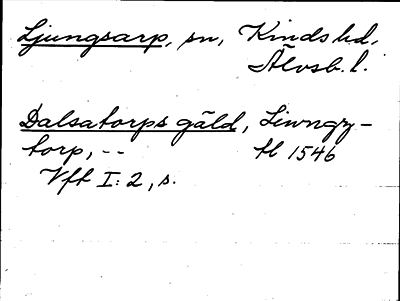 Ljungsarp, sn, Kinds hd,
Älvsb. l.
Dalsatorps gäld, Liwngz-
torp, -- tl 1546
Vft I: 2, s.